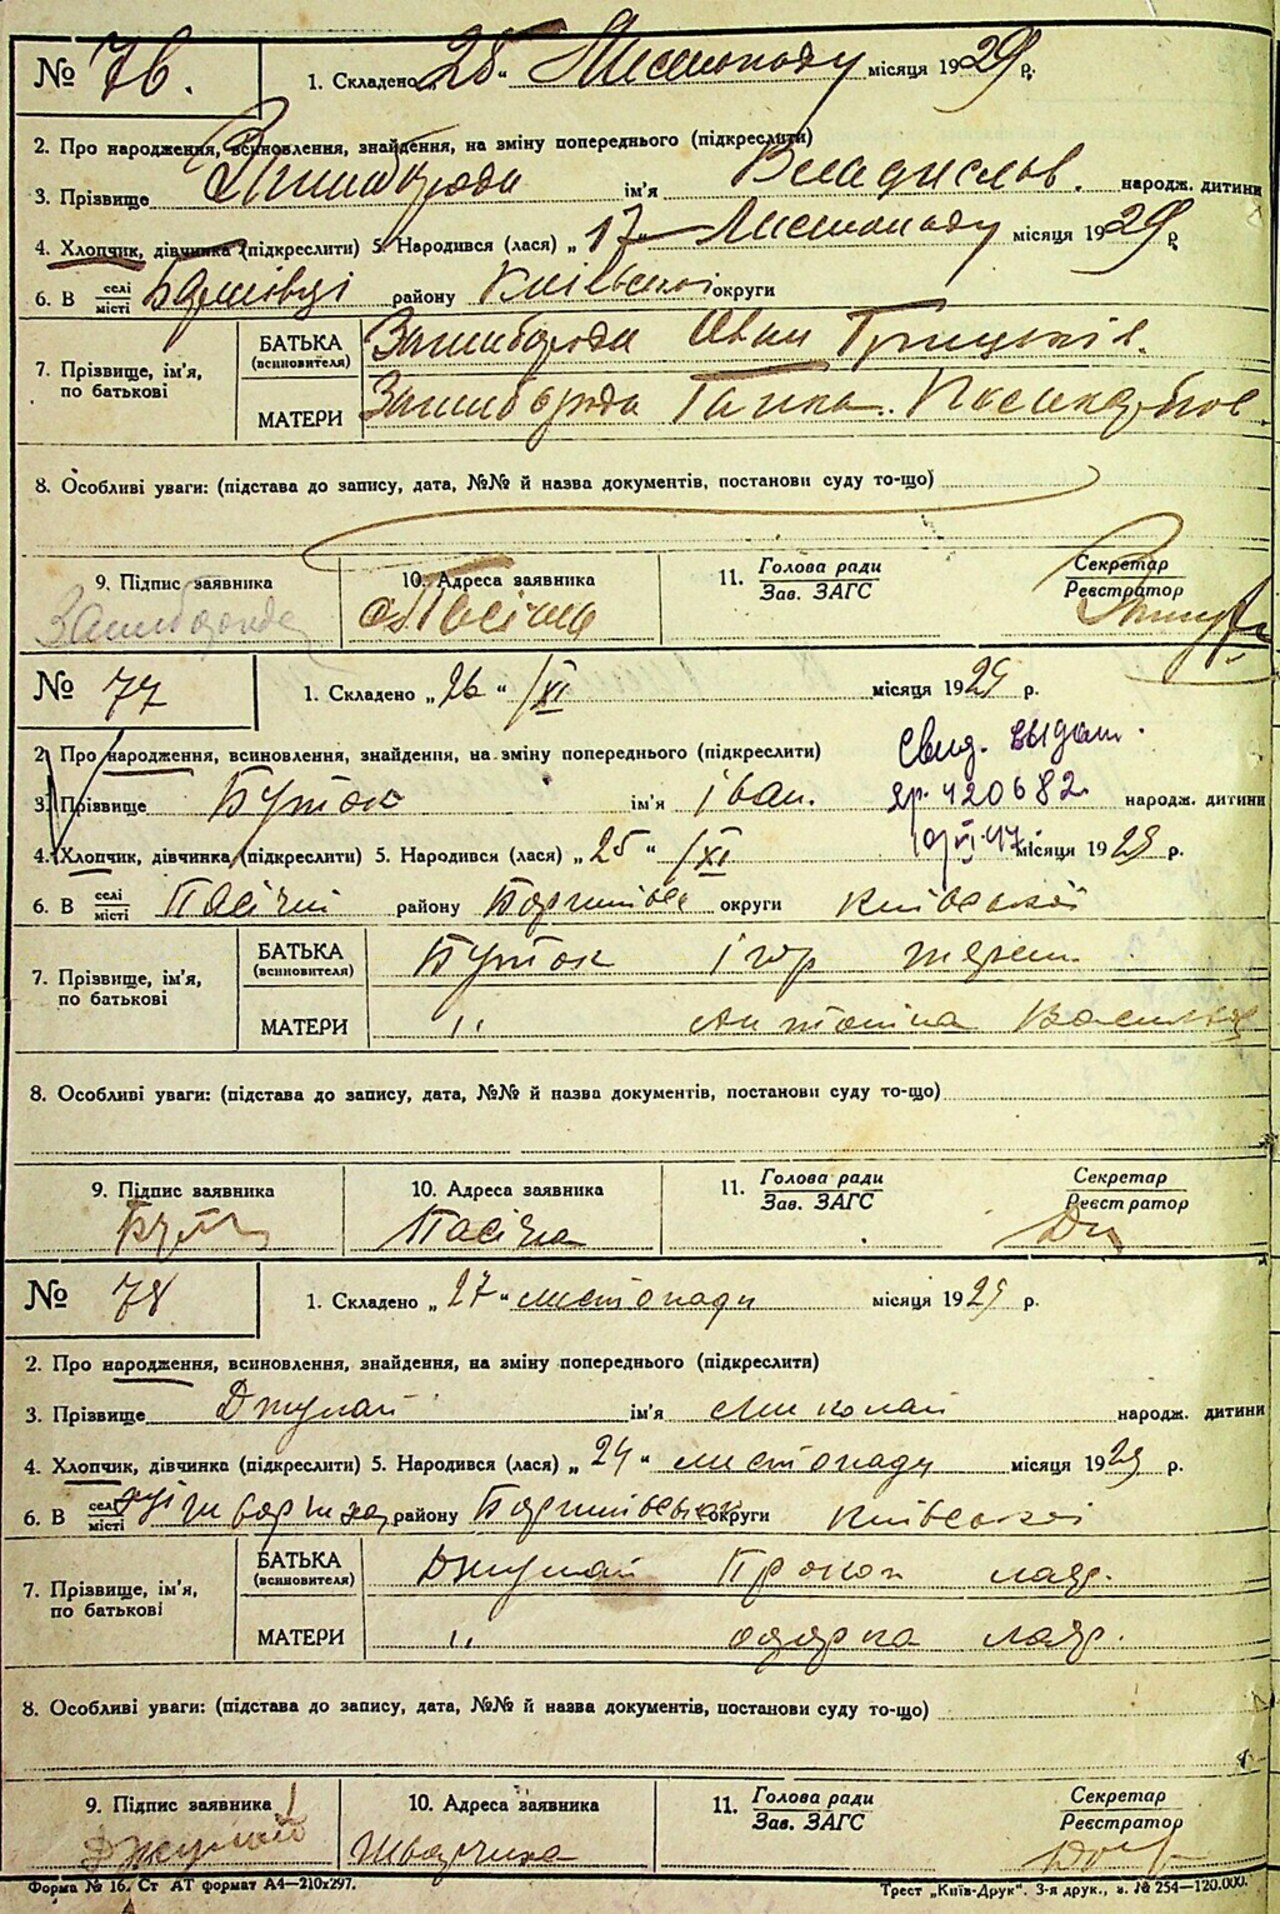 № 76. 1. Складено „25“ Листопаду місяця 1929 р.
2. Про народження, всиновлення, знайдення, на зміну попереднього (підкреслити)
3. Прізвище ім'я Владислов. народж. дитини
4. Хлопчик, дівчинка (підкреслити) 5. Народився (лася) „17 Листопаду місяця 1929 р.
6. В селі/місті району Київської округи
7. Прізвище, ім'я, по батькові БАТЬКА (всиновителя) Зашиборода Іван Грицьків.
МАТЕРИ Зашиборода Ганна.
8. Особливі уваги: (підстава до запису, дата, №№ й назва документів, постанови суду то-що)
9. Підпис заявника 10. Адреса заявника 11. Голова ради/Зав. ЗАГС Секретар/Реєстратор
Зашиборода с. Пасічна
№ 77 1. Складено „26“ /XI місяця 1929 р.
2. Про народження, всиновлення, знайдення, на зміну попереднього (підкреслити) Свид. выдан.
3. Прізвище Буток ім'я Іван. яр. 420682. народж. дитини
4. Хлопчик, дівчинка (підкреслити) 5. Народився (лася) „25“ /XI 19/VI 47 місяця 1929 р.
6. В селі/місті Пасічні району округи Київської
7. Прізвище, ім'я, по батькові БАТЬКА (всиновителя) Буток Ігор
МАТЕРИ " Антоніна
8. Особливі уваги: (підстава до запису, дата, №№ й назва документів, постанови суду то-що)
9. Підпис заявника 10. Адреса заявника 11. Голова ради/Зав. ЗАГС Секретар/Реєстратор
Пасічна
№ 78 1. Складено „27“ листопаду місяця 1929 р.
2. Про народження, всиновлення, знайдення, на зміну попереднього (підкреслити)
3. Прізвище Джулай ім'я Миколай народж. дитини
4. Хлопчик, дівчинка (підкреслити) 5. Народився (лася) „24“ листопаду місяця 1929 р.
6. В селі/місті району округи Київської
7. Прізвище, ім'я, по батькові БАТЬКА (всиновителя) Джулай Прокоп лавр.
МАТЕРИ " одарка лавр.
8. Особливі уваги: (підстава до запису, дата, №№ й назва документів, постанови суду то-що)
9. Підпис заявника 10. Адреса заявника 11. Голова ради/Зав. ЗАГС Секретар/Реєстратор
Джулай
Форма № 16. Ст АТ формат А4—210х297. Трест „Київ-Друк“. 3-я друк., з. № 254—120.000.